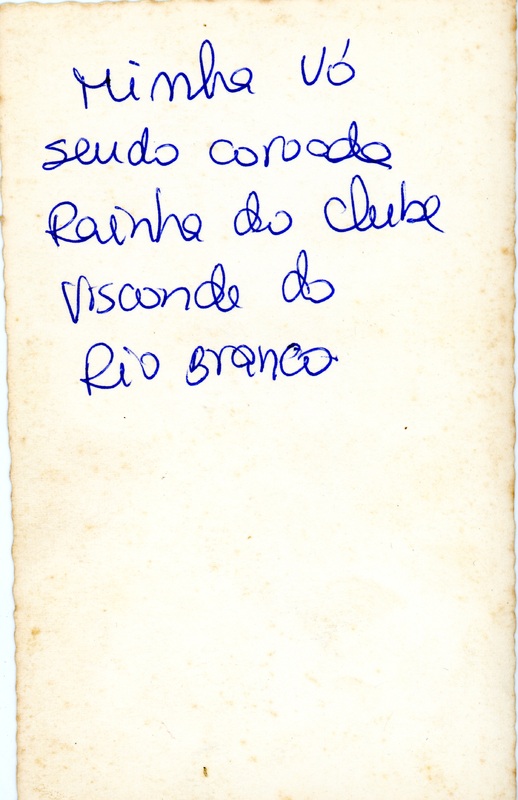 Minha vó
sendo coroada
Rainha do Clube
Visconde do
Rio Branco